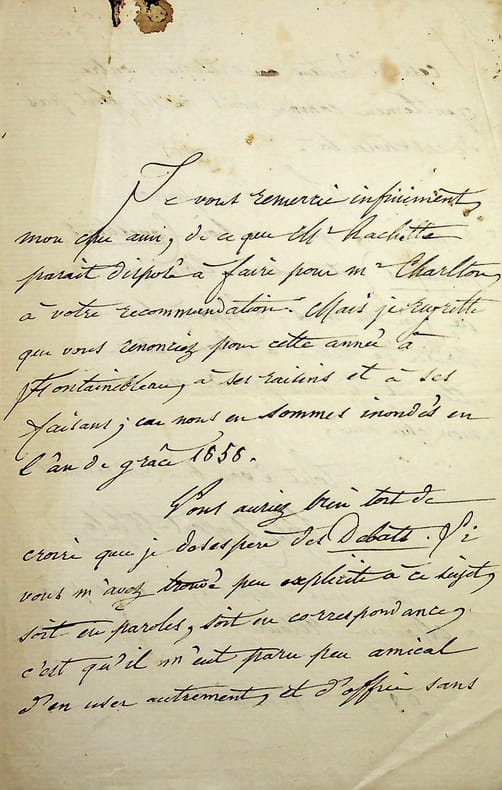 Je vous remercie infiniment,
mon cher ami, de ce que Mr Hachette
parait disposé à faire pour mr Charlton,
à votre recommandation. Mais je regrette
que vous renonciez pour cette année à
Fontainebleau, à ses raisins et à ses
faisans; car nous en sommes inondés en
l'an de grâce 1858.
Vous auriez bien tort de
croire que je désespère des Débats. Si
vous m'avez trouvé peu explicite à ce sujet,
soit en paroles, soit en correspondance,
c'est qu'il m'eut paru peu amical
d'en user autrement, et d'offrir sans